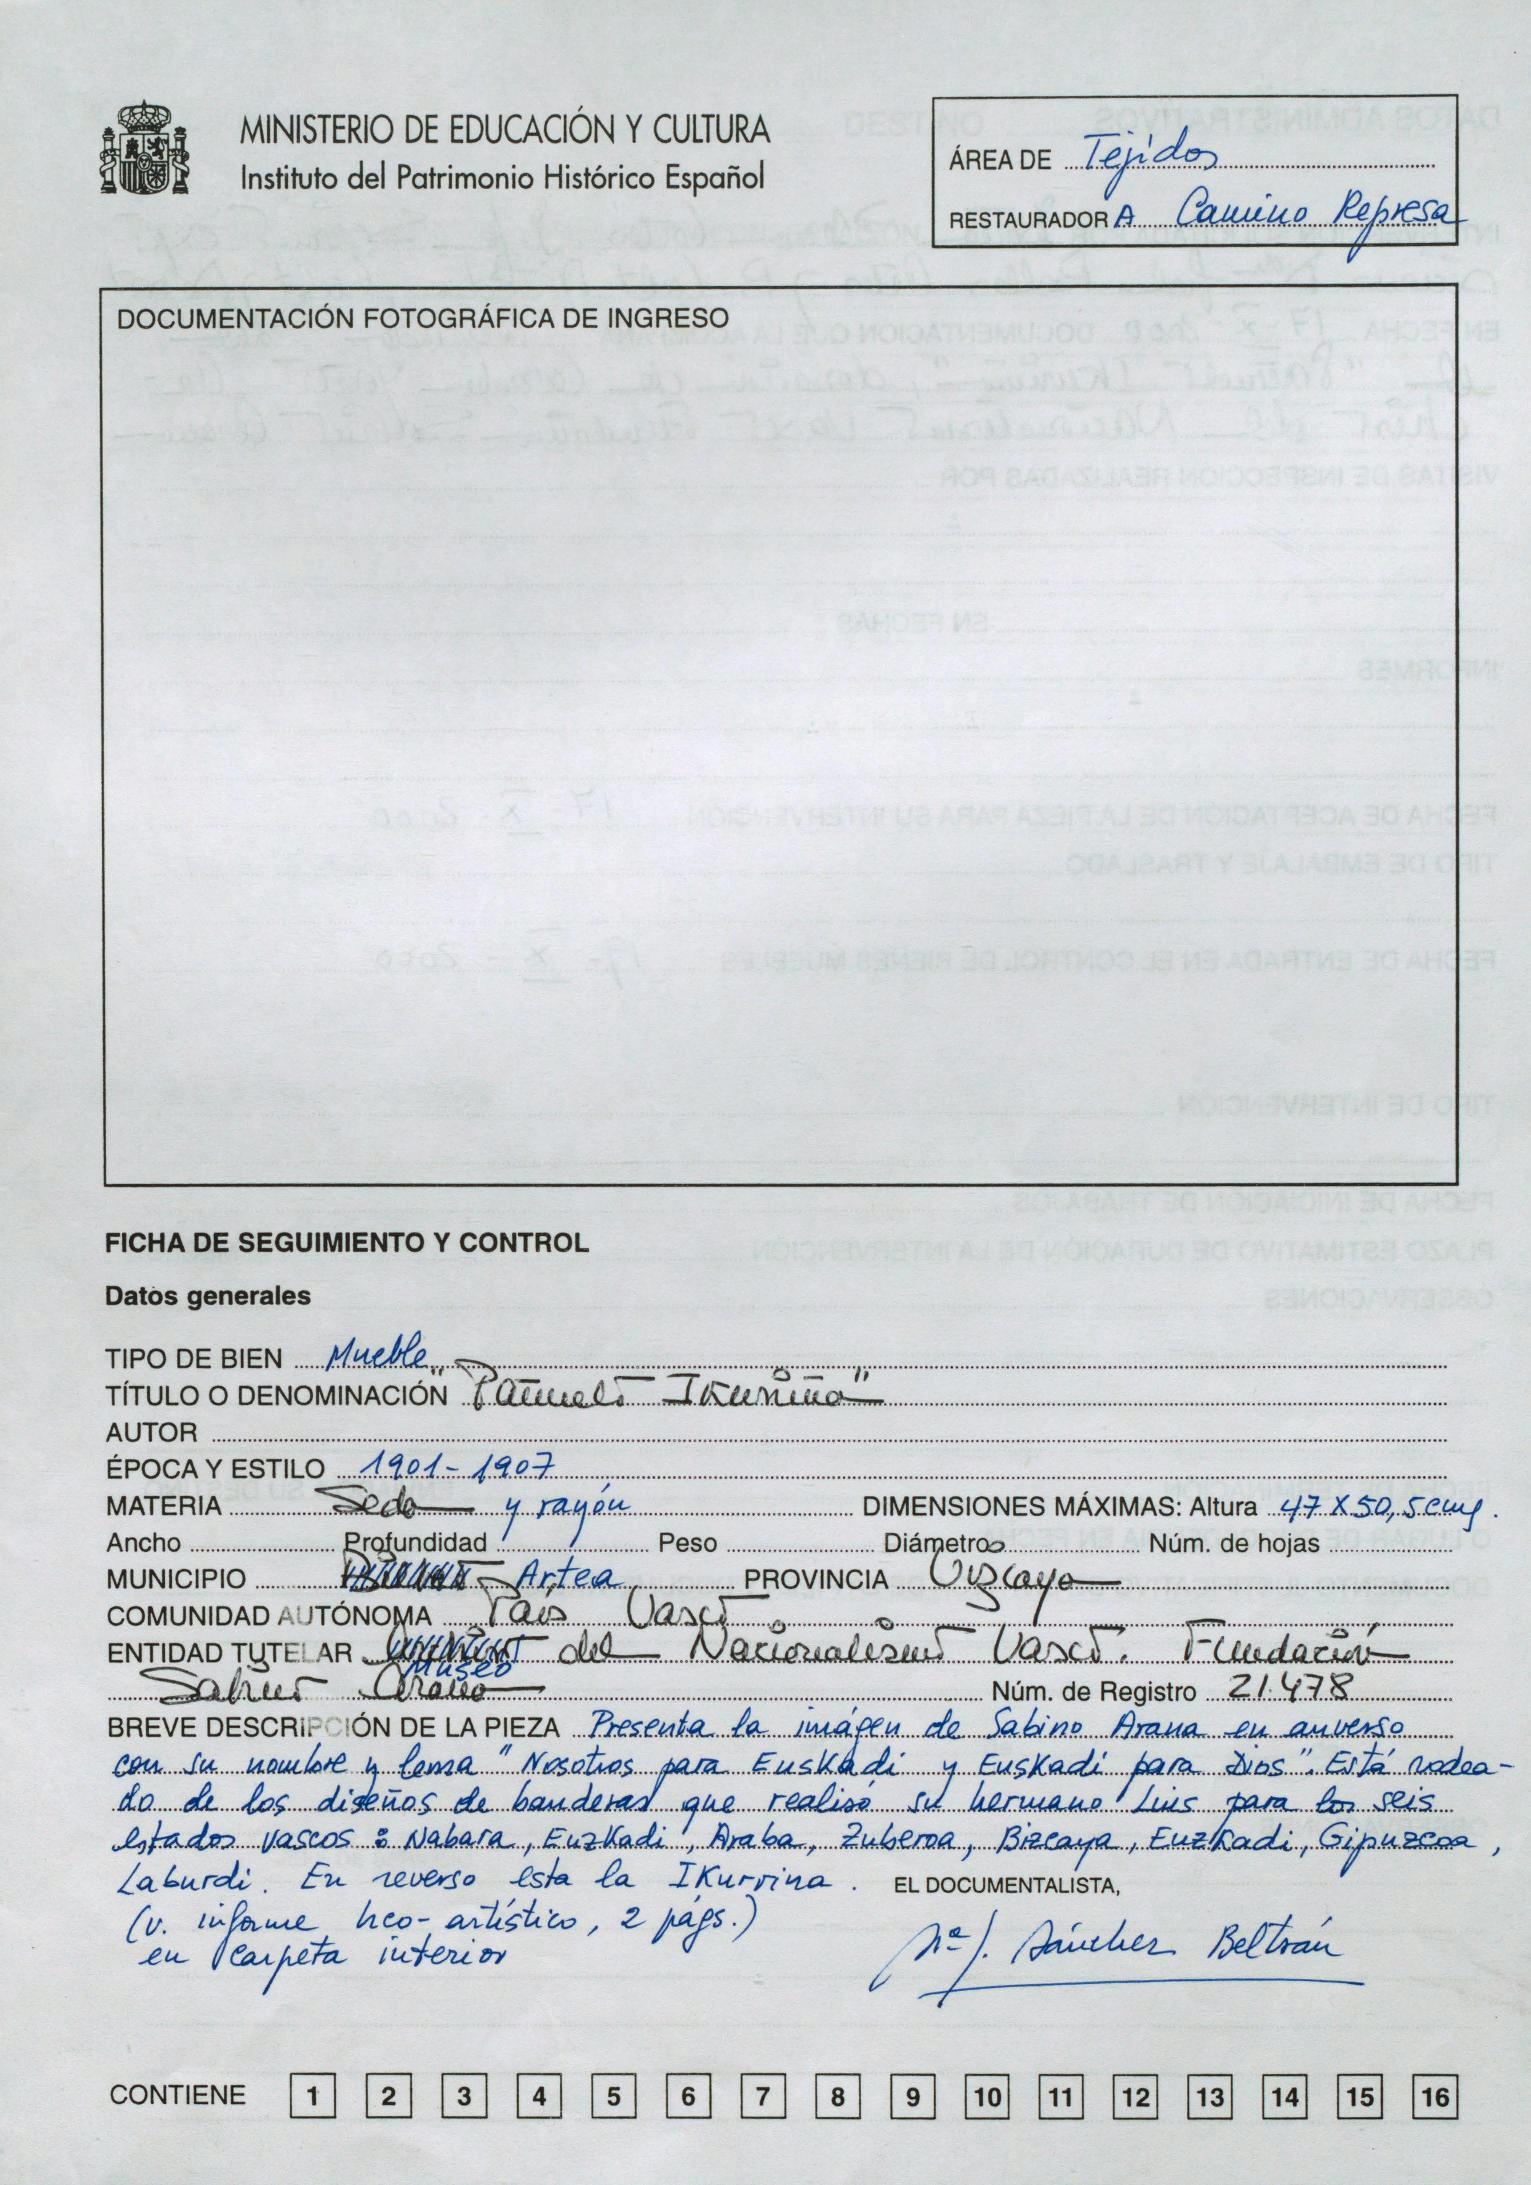 MINISTERIO DE EDUCACIÓN Y CULTURA
Instituto del Patrimonio Histórico Español
ÁREA DE Tejidos
RESTAURADOR A Camino Represa
DOCUMENTACIÓN FOTOGRÁFICA DE INGRESO
FICHA DE SEGUIMIENTO Y CONTROL
Datos generales
TIPO DE BIEN Mueble
TÍTULO O DENOMINACIÓN "Pañuelo Ikurriña"
AUTOR
ÉPOCA Y ESTILO 1901-1907
MATERIA Seda y rayón DIMENSIONES MÁXIMAS: Altura 47 X 50,5 cms.
Ancho Profundidad Peso Diámetro Núm. de hojas
MUNICIPIO Artea PROVINCIA Vizcaya
COMUNIDAD AUTÓNOMA País Vasco
ENTIDAD TUTELAR Museo del Nacionalismo Vasco. Fundación
Sabino Arana Núm. de Registro 21.478
BREVE DESCRIPCIÓN DE LA PIEZA Presenta la imágen de Sabino Arana en anverso
con su nombre y lema "Nosotros para Euskadi y Euskadi para Dios". Está rodea-
do de los diseños de banderas que realisó su hermano Luis para los seis
estados vascos: Nabara, Euzkadi, Araba, Zuberoa, Bizcaya, Euzkadi, Gipuzcoa,
Laburdi. En reverso esta la Ikurrina. EL DOCUMENTALISTA,
(v. informe hco-artístico, 2 págs.)
en carpeta interior
Mª J. Sánchez Beltrán
CONTIENE 1 2 3 4 5 6 7 8 9 10 11 12 13 14 15 16